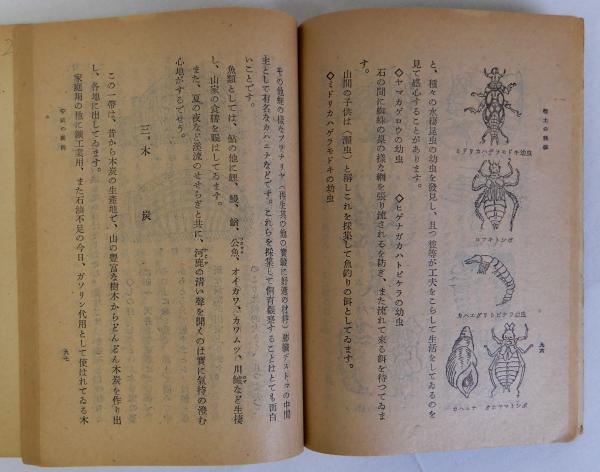 郷土の科學
ミドリカハゲラモドキ幼虫
コフキトンボ
カハエグリトビケラの虫
カハニナ
九六
と、種々の水棲昆虫の幼虫を發見し、且つ彼等が工夫をこらして生活をしてゐるのを
見て感心することがあります。
◇ヤマカゲロウの幼虫　◇ヒゲナガカハトビケラの幼虫
石の間に蜘蛛の巣の様な網を張り流されるを防ぎ、また流れて來る餌を待つてゐま
す。
山間の子供は（瀬虫）と稱しこれを採集して魚釣りの餌としてゐます。
◇ミドリカハゲラモドキの幼虫
その他蛭の様なプラナリヤ（再生其の他の實驗に好適の材料）肺臓ヂストマの中間
主として有名なカハニナなどです。これらを採集して飼育觀察することはとても面白
いことです。
魚類としては、鮎の他に鯉、鰻、鮒、公魚、オイカワ、カワムツ、川鱒など生棲
し、山家の食膳を賑はしてゐます。
また、夏の夜など溪流のせせらぎと共に、河鹿の清い聲を聞くのは實に氣持の澄む
心地がするでせう。
三、木　炭
この一帶は、昔から木炭の生產地で、山の豊富な樹木からどんどん木炭を作り出
し、各地に出してゐます。
家庭用の他に鑛工業用、また石油不足の今日、ガソリン代用として使はれてゐる木
九七